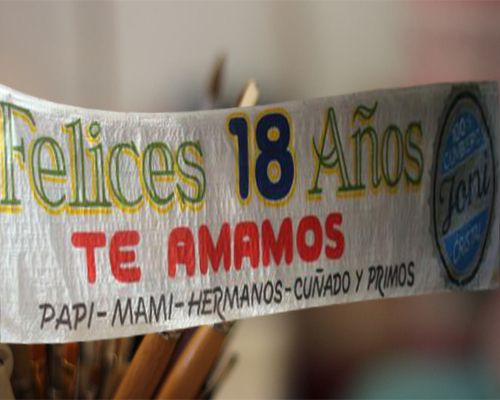 Felices 18 Años
TE AMAMOS
PAPI-MAMI-HERMANOS-CUÑADO Y PRIMOS
Joni